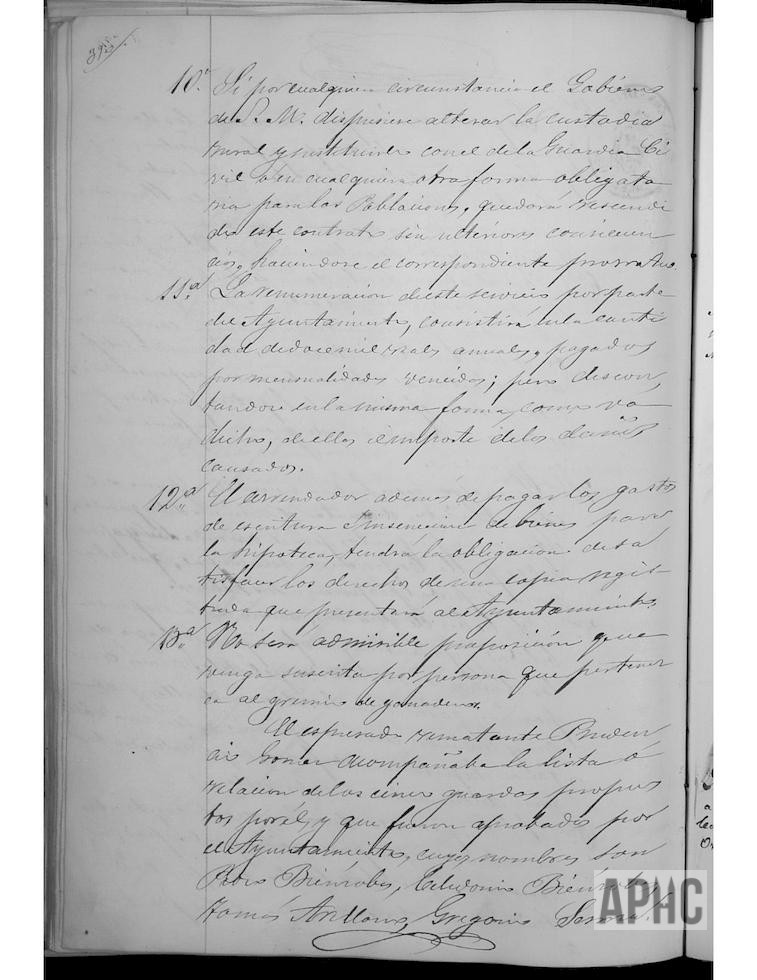 10.ª Si por cualquiera circunstancia el Gobierno
de S. M. dispusiere alterar la custodia
rural y sustituirla con el de la Guardia Ci
vil ó en cualquiera otra forma obligato
ria para las Poblaciones, quedará rescendi
do este contrato sin ulteriores consecuen
cias, haciendose el correspondiente prorrateo.
11.ª La remuneracion de este servicio por parte
del Ayuntamiento, consistirá en la canti
dad de doce mil reales anuales, pagados
por mensualidades vencidas; pero descon
tandose en la misma forma, como va
dicho, de ellas el importe de los daños
causados.
12.ª El arrendador ademas de pagar los gastos
de escritura é inscricion de bienes para
la hipoteca, tendrá la obligacion de sa
tisfacer los derechos de una copia regis
trada que presentará al Ayuntamiento.
13.ª No será admisible proposicion que
venga suscrita por persona que pertenez
ca al gremio de ganaderos.
El espresado rematante Pruden
cio Gomez acompañaba la lista ó
relacion de los cinco guardas propues
tos por él, y que fueron aprobados por
el Ayuntamiento, cuyos nombres son
Pedro Biénzobas, Celedonio Biénzobas,
Tomás Arellano, Gregorio
APHC